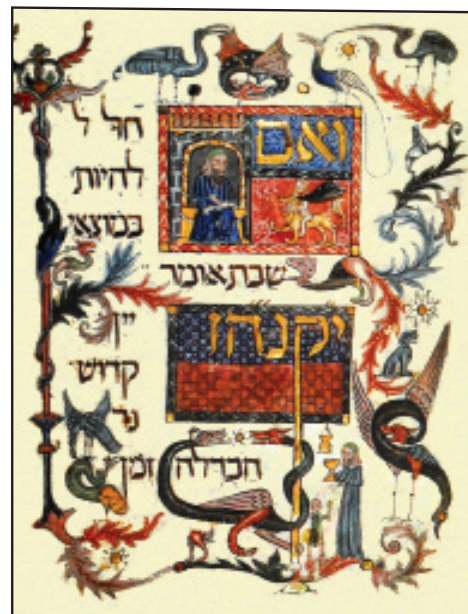 ואם חל ל
להיות
במוצאי
שבת אומר
יקנהז
יין
קדוש
נר
הבדלה זמן